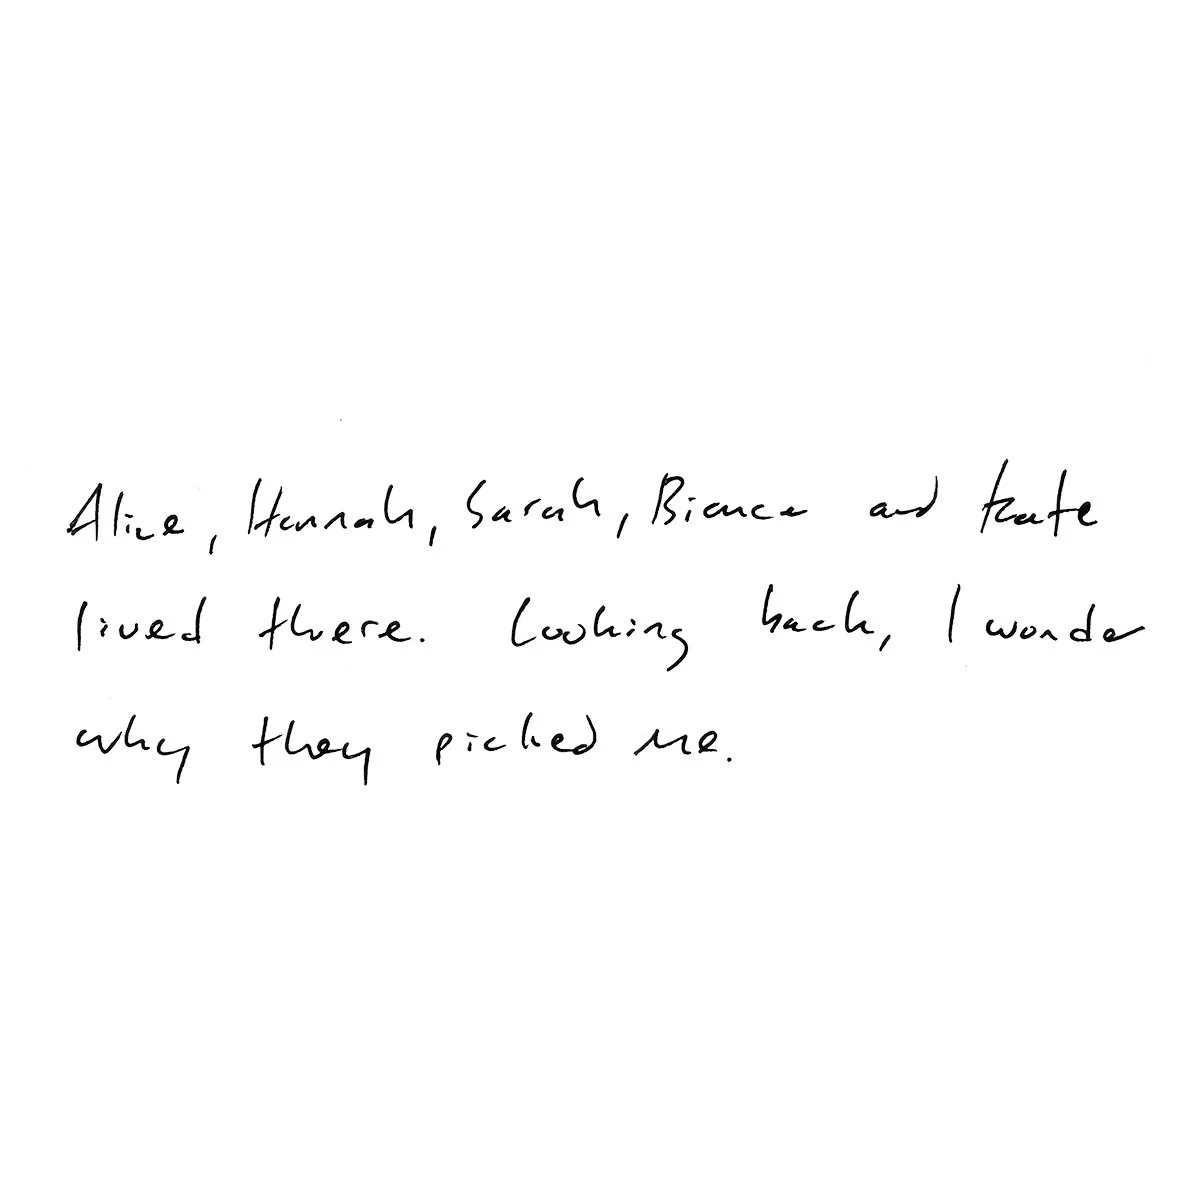 Alice, Hannah, Sarah, Bianca and Kate
lived there. Looking back, I wonder
why they picked me.